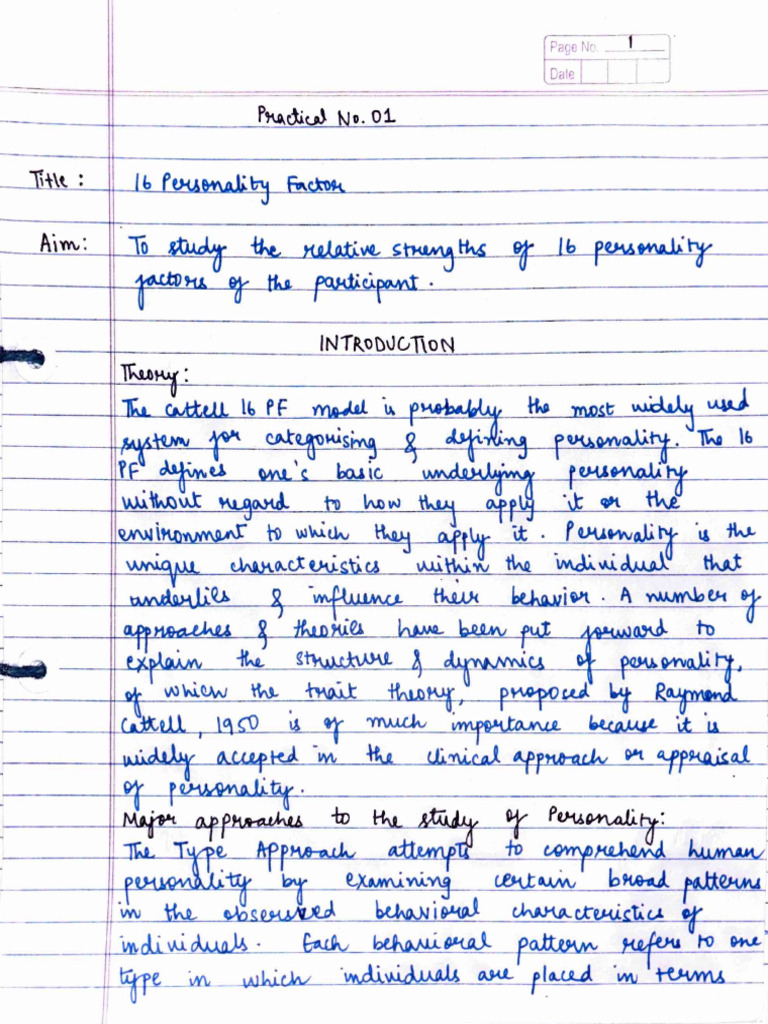 Page No. 1
Date
Practical No. 01
Title : 16 Personality Factor
Aim: To study the relative strengths of 16 personality
factors of the participant.
INTRODUCTION
Theory:
The Cattell 16 PF model is probably the most widely used
system for categorising & defining personality. The 16
PF defines one's basic underlying personality
without regard to how they apply it or the
environment to which they apply it. Personality is the
unique characteristics within the individual that
underlies & influence their behavior. A number of
approaches & theories have been put forward to
explain the structure & dynamics of personality,
of which the trait theory, proposed by Raymond
Cattell, 1950 is of much importance because it is
widely accepted in the clinical approach or appraisal
of personality.
Major approaches to the study of Personality:
The Type Approach attempts to comprehend human
personality by examining certain broad patterns
in the observed behavioral characteristics of
individuals. Each behavioral pattern refers to one
type in which individuals are placed in terms